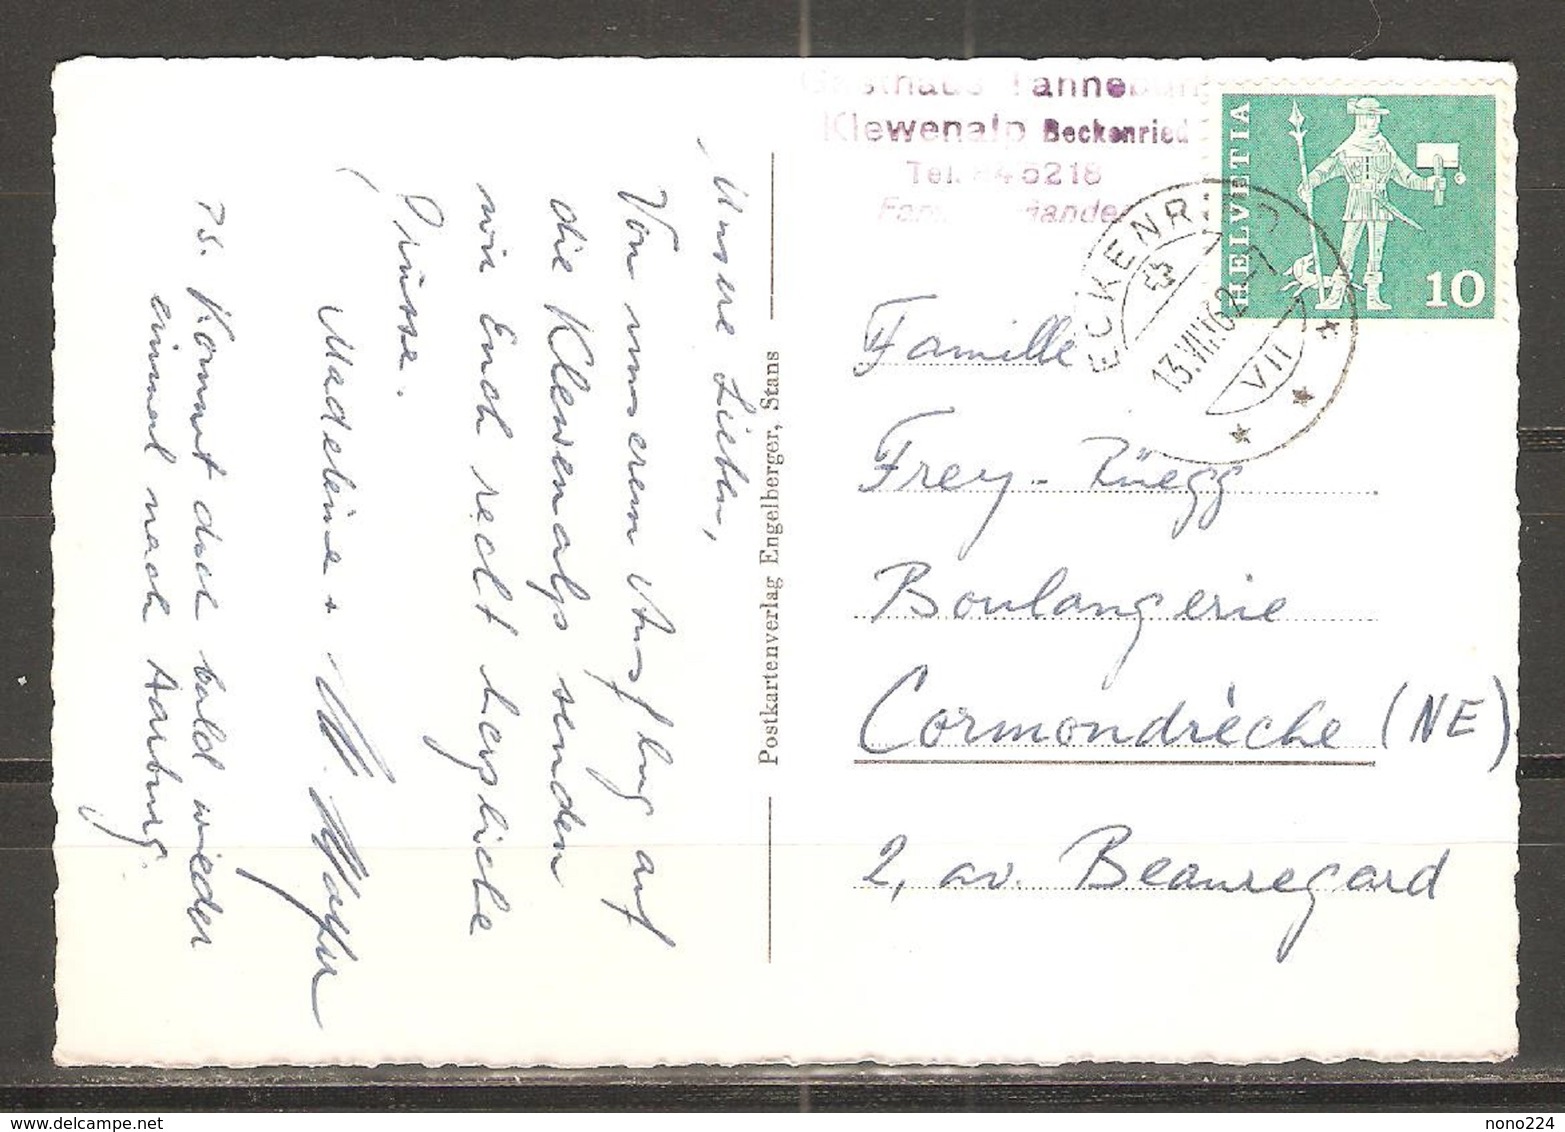 Gasthaus Tanneburg
Klewenalp Beckenried
Tel. 45218
HELVETIA
10
BECKENRIED
13.VIII.62
VII
Unsere Lieben,
Von unserem Ausflug auf
die Klewenalp senden
wir Euch recht herzliche
Grüsse.
Madeleine +
Ps. Kommt doch bald wieder
einmal nach Aarburg.
Postkartenverlag Engelberger, Stans
Famille
Frey-Rüegg
Boulangerie
Cormondrèche (NE)
2, av. Beauregard
nono224